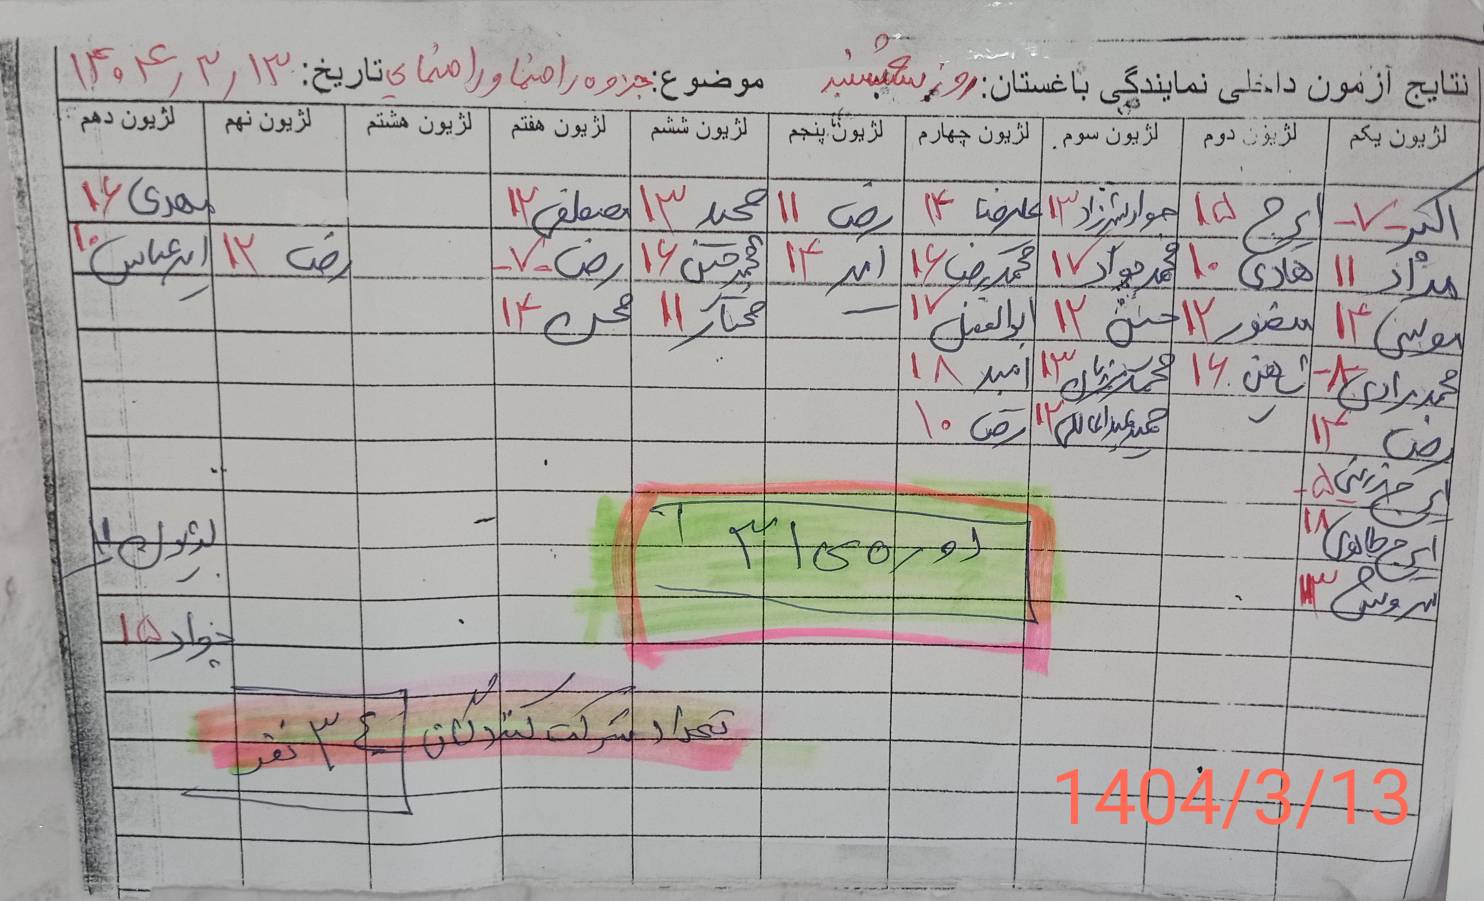 نتایج آزمون داخلی نمایندگی باغستان: روز سه‌شنبه موضوع: جزوه راهنما و راهنمای تاریخ: ۱۴۰۴٫۳٫۱۳
لژیون یکم لژیون دوم لژیون سوم لژیون چهارم لژیون پنجم لژیون ششم لژیون هفتم لژیون هشتم لژیون نهم لژیون دهم
اکبر -۷- ایرج ۱۵ جواد ۱۳ علیرضا ۱۴ رضا ۱۱ محمد ۱۳ مصطفی ۱۲ مهدی ۱۶
مژاد ۱۱ هادی ۱۰ محمدجواد ۱۷ محمدرضا ۱۶ امیر ۱۴ محمدحسن ۱۶ رضا -۷- رضا ۱۲ امیرعباس ۱۰
موسی ۱۴ منصور ۱۲ حسین ۱۲ ابوالفضل ۱۷ مختار ۱۱ محسن ۱۴
محمدمرادی -۸- شاهین ۱۶ ۱۳ امید ۱۸
رضا ۱۴ ۱۲ رضا ۱۰
ایرج -۵-
ایرج طالبی ۱۸
سروش ۱۳
لژیون ۱۱
دوره‌ی ۳۱
جواد ۱۵
تعداد شرکت کنندگان ۳۴ نفر
1404/3/13